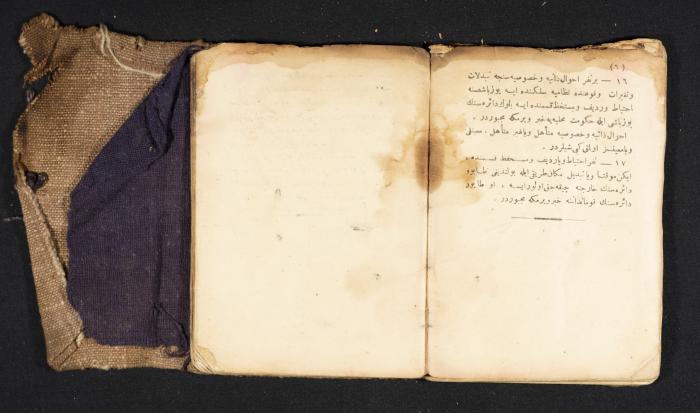 (٦)
١٦ — برنفر احوال ذاتیه و خصوصیه‌سنجه تبدلات
و تغیرات وقوعنده نظامیه سلکنده ایسه یوزباشیسنه
احتیاط وردیف و مستحفظ قسمنده ایسه بلوك دائره‌سنك
یوزباشی ایله حکومت محلیه‌یه خبر ویرمکه مجبوردر .
احوال ذاتیه و خصوصیه متأهل ویاغیر متأهل ،
ویا معینسز اولانی کبی شیلردر .
١٧ — نفر احتیاط ویاردیف و مستحفظ
ایکن موقتا ویا تبدیل مکان طریقی ایله بولندیغی طابور
دائره‌سنك خارجنه چیقه‌جق اولورایسه ، او طابور
دائره‌سنك قومانداننه خبر ویرمکه مجبوردر .